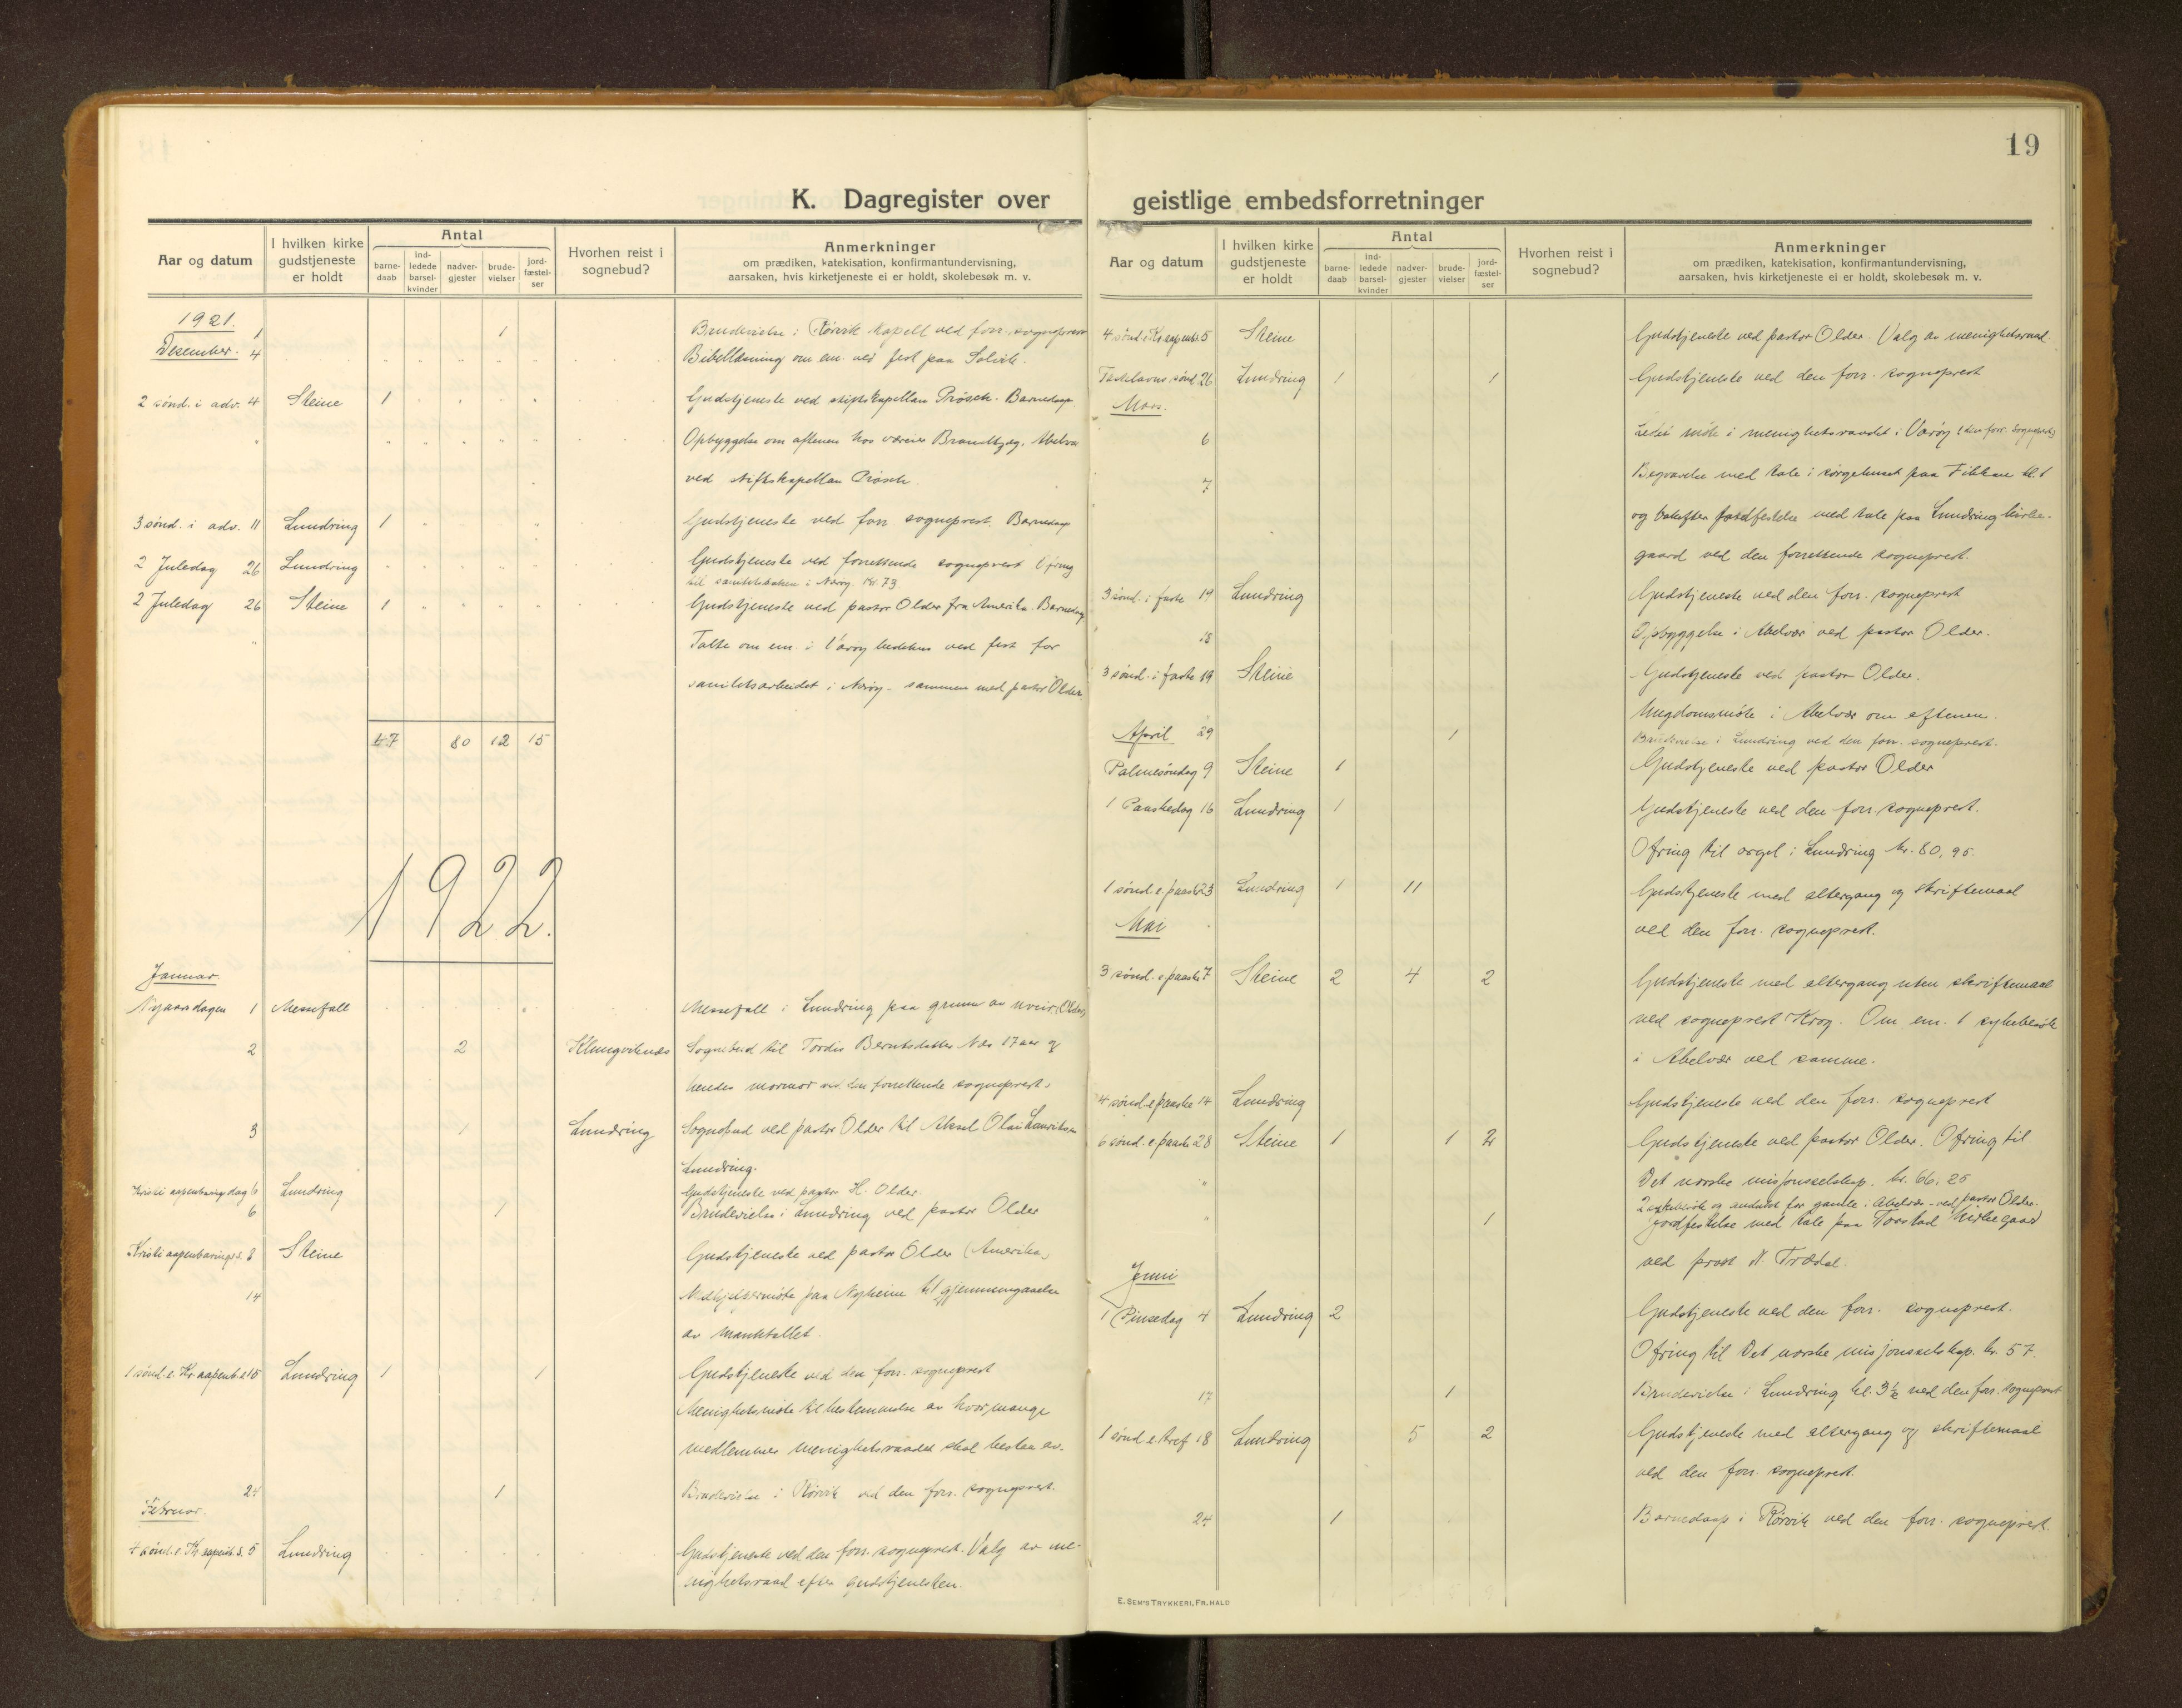 19
K. Dagregister over geistlige embedsforretninger
Aar og datum
I hvilken kirke gudstjeneste er holdt
Antal
barne-daab
ind-ledede barsel-kvinder
nadver-gjester
brude-vielser
jord-fæstel-ser
Hvorhen reist i sognebud?
Anmerkninger
om prædiken, katekisation, konfirmantundervisning,
aarsaken, hvis kirketjeneste ei er holdt, skolebesøk m. v.
1921.
Desember. 1 1 Brudevielse i Rørvik kapell ved forr. sogneprest
4 Bibellæsning om em. ved fest paa Solvik.
2 sønd. i adv. 4 Steine 1 Gudstjeneste ved stiftskapellan Prøsch. Barnedaap.
Opbyggelse om aftenen hos væreier Brandtzæg, Abelvær
ved stiftskapellan Prøsch.
3 sønd. i adv. 11 Lundring 1 Gudstjeneste ved forr. sogneprest. Barnedaap
2 Juledag 26 Lundring Gudstjeneste ved forrettende sogneprest Ofring
til sanitetssaken i Nærøy. kr. 73
2 Juledag 26 Steine 1 Gudstjeneste ved pastor Older fra Amerika. Barnedaap
Talte om em. i Værøy bedehus ved fest for
sanitetsarbeidet i Nærøy - sammen med pastor Older.
47 80 12 15
1922.
Januar.
Nyaarsdagen 1 Messefall Messefall i Lundring paa grunn av uveir (Older)
2 2 Klungviknes Sognebud til Tordis Berntsdatter Næs 17 aar og
hendes mormor ved den forrettende sogneprest.
3 1 Lundring Sognebud ved pastor Older til Aksel Olai Lauritsen
Lundring.
Kristi aapenbaringsdag 6 Lundring Gudstjeneste ved pastor H. Older.
6 1 Brudevielse i Lundring ved pastor Older
Kristi aapenbarings s. 8 Steine Gudstjeneste ved pastor Older (Amerika)
14 Medhjelpermøte paa Nyheim til gjennemgaaelse
av manntallet.
1 sønd. e. Kr. aapenb. 15 Lundring 1 1 Gudstjeneste ved den forr. sogneprest
Menighetsmøte til bestemmelse av hvor mange
medlemmer menighetsraadet skal bestaa av.
24 1 Brudevielse i Rørvik ved den forr. sogneprest.
Februar.
4 sønd. e. Kr. aapenb. s. 5 Lundring Gudstjeneste ved den forr. sogneprest. Valg av me-
nighetsraad efter gudstjenesten.
Aar og datum
I hvilken kirke gudstjeneste er holdt
Antal
barne-daab
ind-ledede barsel-kvinder
nadver-gjester
brude-vielser
jord-fæstel-ser
Hvorhen reist i sognebud?
Anmerkninger
om prædiken, katekisation, konfirmantundervisning,
aarsaken, hvis kirketjeneste ei er holdt, skolebesøk m. v.
4 sønd. e. Kr. aapenb. 5 Steine Gudstjeneste ved pastor Older. Valg av menighetsraad.
Fastelavns sønd. 26 Lundring 1 1 Gudstjeneste ved den forr. sogneprest
Mars.
6 Ledet møte i menighetsraadet i Værøy (den forr. sogneprest)
7 Begravelse med tale i sørgehuset paa kl. 1
og derefter jordfestelse med tale paa Lundring kirke-
gaard ved den forrettende sogneprest.
3 sønd. i faste 19 Lundring Gudstjeneste ved den forr. sogneprest
18 Opbyggelse i Abelvær ved pastor Older.
3 sønd. i faste 19 Steine Gudstjeneste ved pastor Older.
Ungdomsmøte i Abelvær om eftenen.
April 29 1 Brudevielse i Lundring ved den forr. sogneprest.
Palmesøndag 9 Steine 1 Gudstjeneste ved pastor Older
1 Paaskedag 16 Lundring 1 Gudstjeneste ved den forr. sogneprest.
Ofring til orgel i Lundring kr. 80,95.
1 sønd. e. paaske 23 Lundring 1 11 Gudstjeneste med altergang og skriftemaal
Mai
ved den forr. sogneprest.
3 sønd. e. paaske 7 Steine 2 4 2 Gudstjeneste med altergang uten skriftemaal
ved sogneprest Krog. Om em. 1 sykebesøk
i Abelvær ved samme.
4 sønd. e. paaske 14 Lundring Gudstjeneste ved den forr. sogneprest
6 sønd. e. paaske 28 Steine 1 1 2 Gudstjeneste ved pastor Older. Ofring til
Det norske misjonsselskap. kr. 66,25
2 sykebesøk og andakt for gamle i Abelvær - ved pastor Older.
1 Jordfestelse med tale paa Torstad kirkegaard
ved prost N. Trædal.
Juni
1 Pinsedag 4 Lundring 2 Gudstjeneste ved den forr. sogneprest.
Ofring til Det norske misjonsselskap. kr. 57.
17 1 Brudevielse i Lundring kl. 3½ ved den forr. sogneprest
1 sønd. e. tref. 18 Lundring 5 2 Gudstjeneste med altergang og skriftemaal
ved den forr. sogneprest.
24 1 Barnedaap i Rørvik ved den forr. sogneprest.
E. SEM'S TRYKKERI, FR. HALD